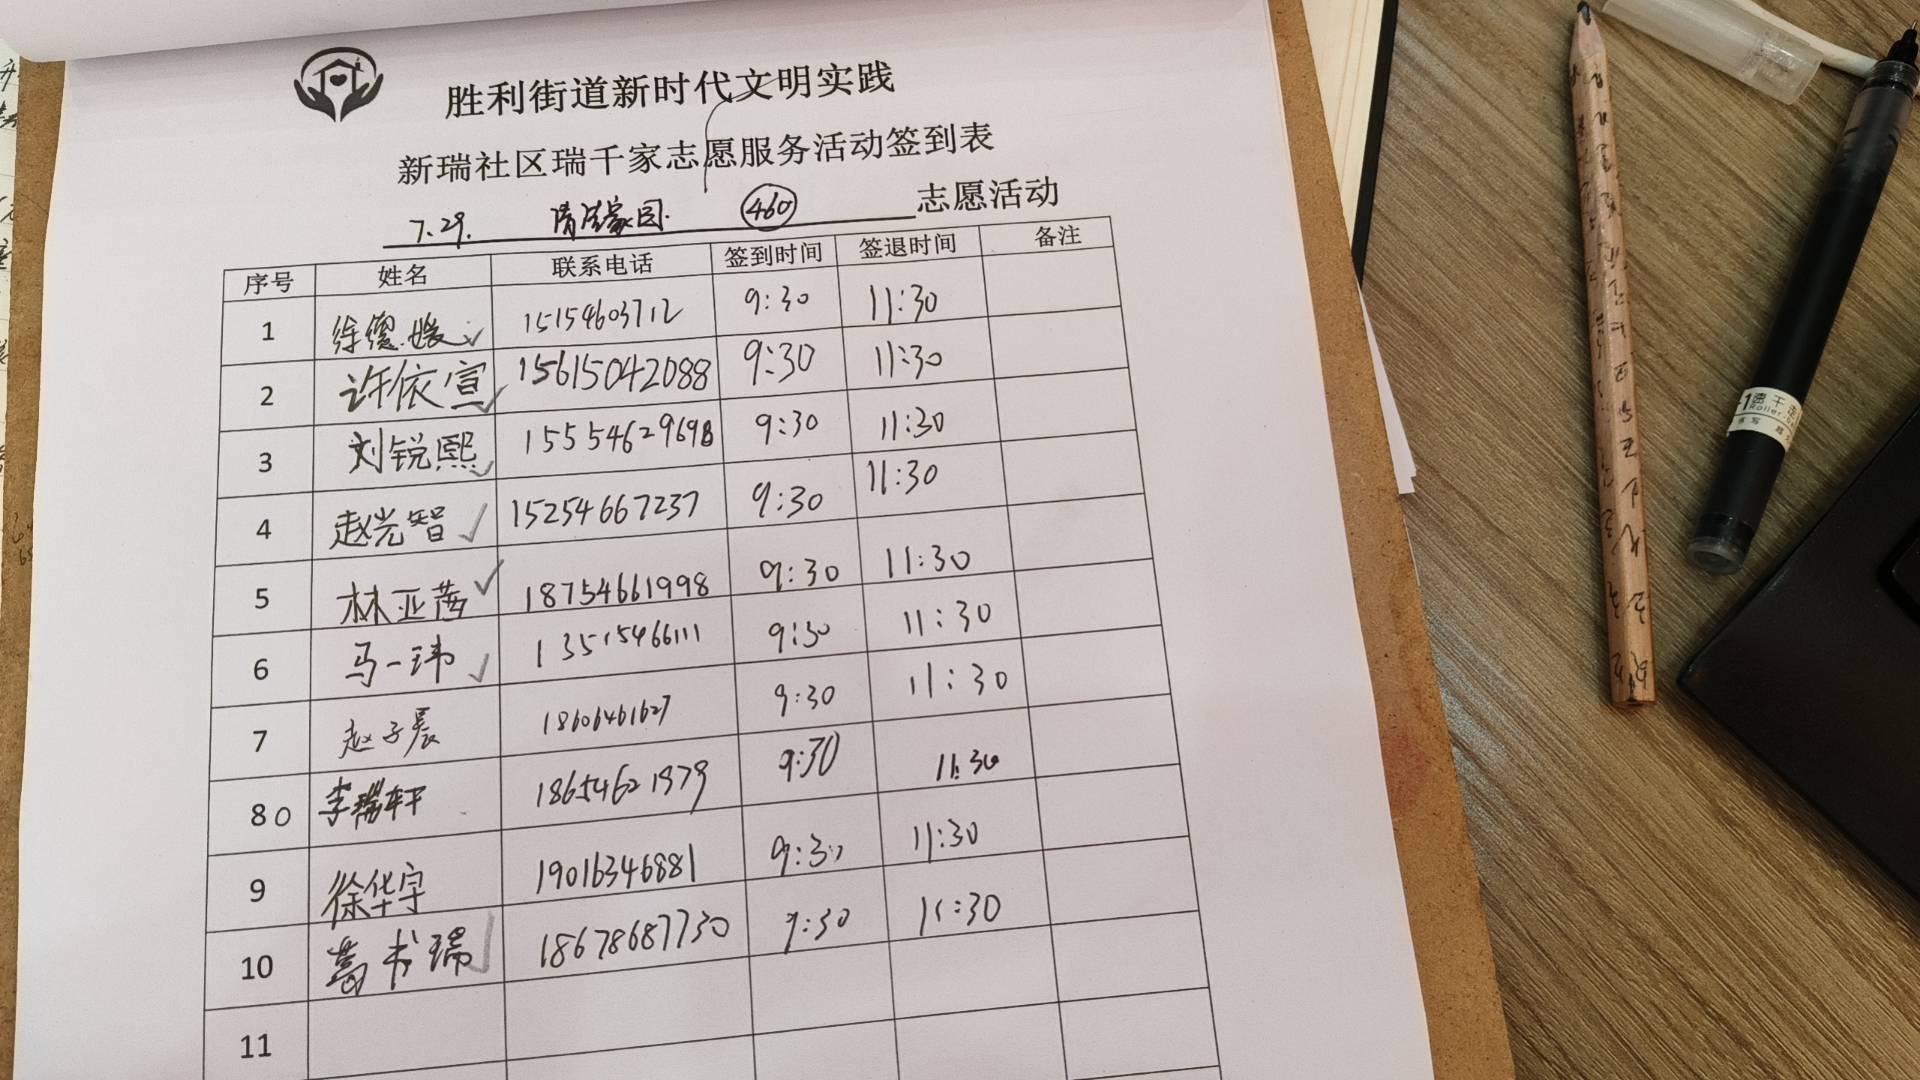 胜利街道新时代文明实践
新瑞社区瑞千家志愿服务活动签到表
7.29. 清洁家园. 460 志愿活动
序号 姓名 联系电话 签到时间 签退时间 备注
1 徐 15154603712 9:30 11:30
2 许依宣 15615042088 9:30 11:30
3 刘锐熙 15554629698 9:30 11:30
4 赵光智 15254667237 9:30 11:30
5 林亚茜 18754661998 9:30 11:30
6 马一玮 13515466111 9:30 11:30
7 赵子晨 18606461627 9:30 11:30
8 0 李瑞轩 18654621979 9:30 11:30
9 徐华宇 19016346881 9:30 11:30
10 葛书瑞 18678687730 9:30 11:30
11